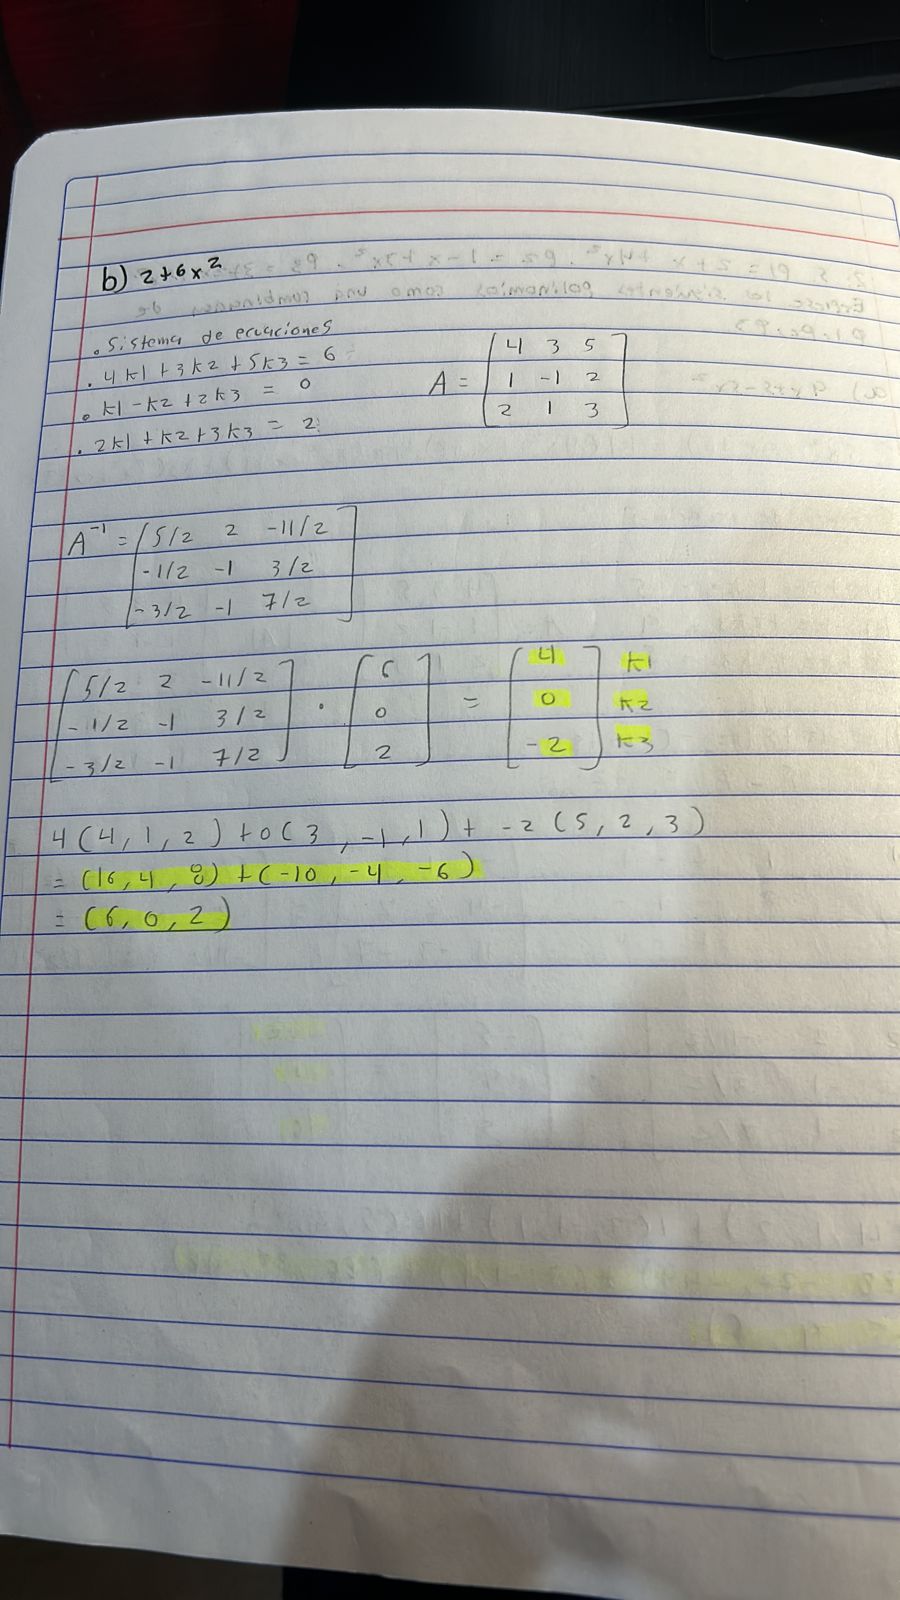 b) 2+6x²
. Sistema de ecuaciones
. 4k1 + 3k2 + 5k3 = 6
. k1 - k2 + 2k3 = 0
. 2k1 + k2 + 3k3 = 2
A = [4 3 5
1 -1 2
2 1 3]
A⁻¹ = [5/2 2 -11/2
-1/2 -1 3/2
-3/2 -1 7/2]
[5/2 2 -11/2] [6] [4] k1
[-1/2 -1 3/2] · [0] = [0] k2
[-3/2 -1 7/2] [2] [-2] k3
4(4, 1, 2) + 0(3, -1, 1) + -2(5, 2, 3)
= (16, 4, 8) + (-10, -4, -6)
= (6, 0, 2)